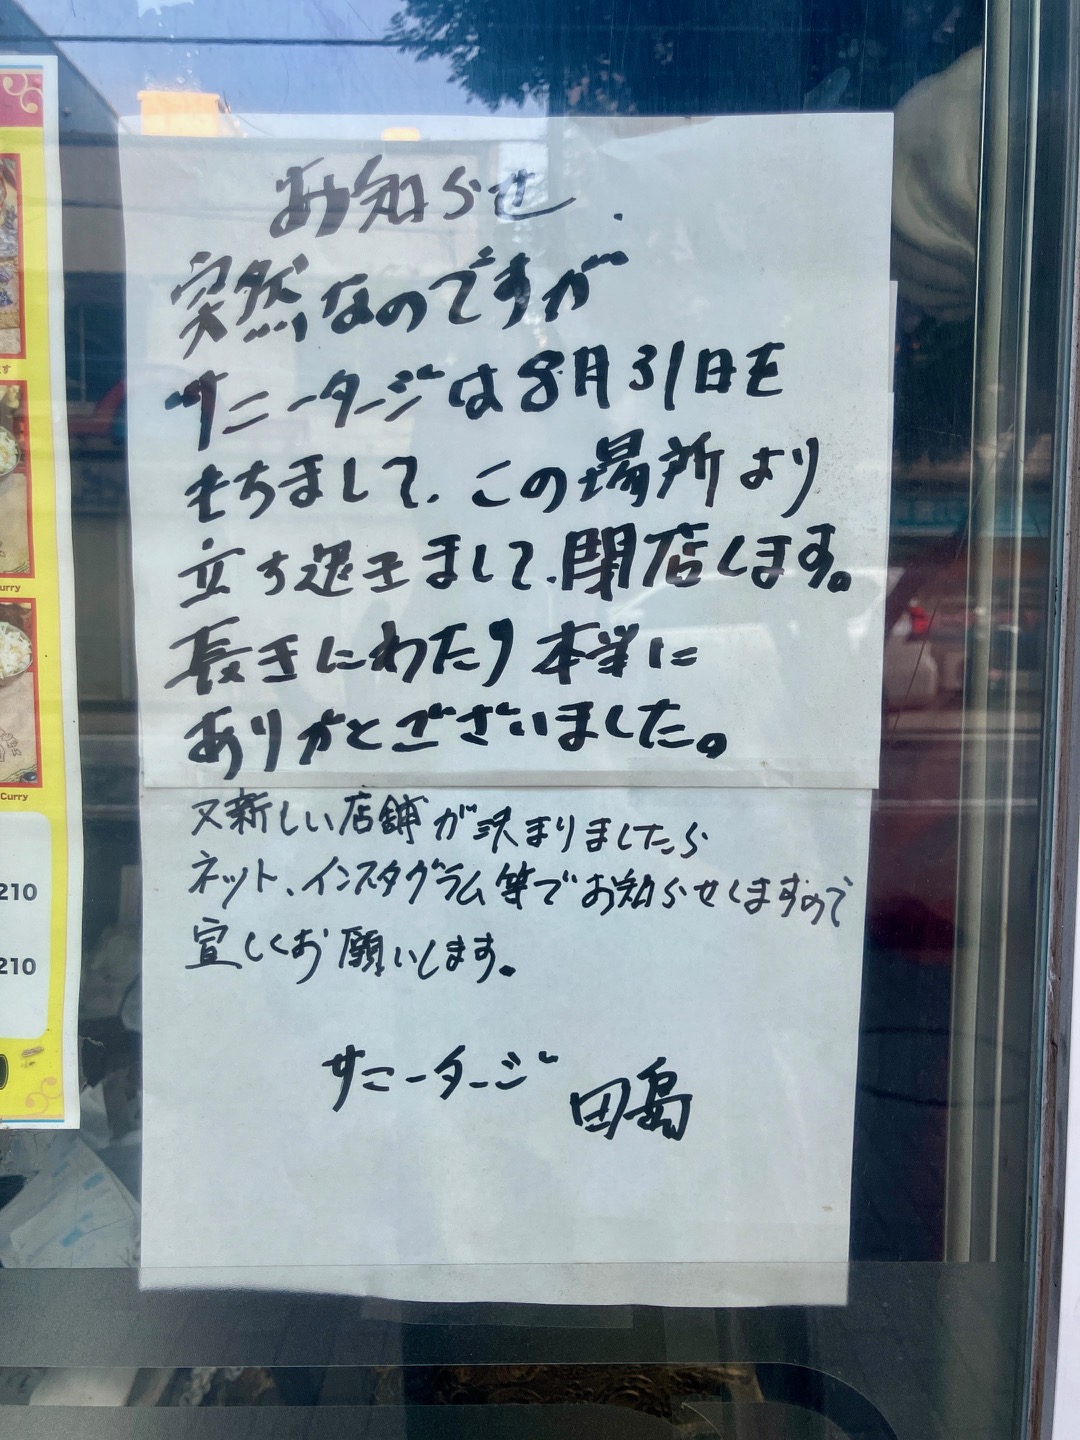 お知らせ.
突然なのですが
サニータージは8月31日を
もちまして、この場所より
立ち退きまして、閉店します。
長きにわたり本当に
ありがとございました。
又新しい店舗が決まりましたら
ネット、インスタグラム等でお知らせしますので
宜しくお願いします。
サニータージ 田島
urry
Curry
210
210